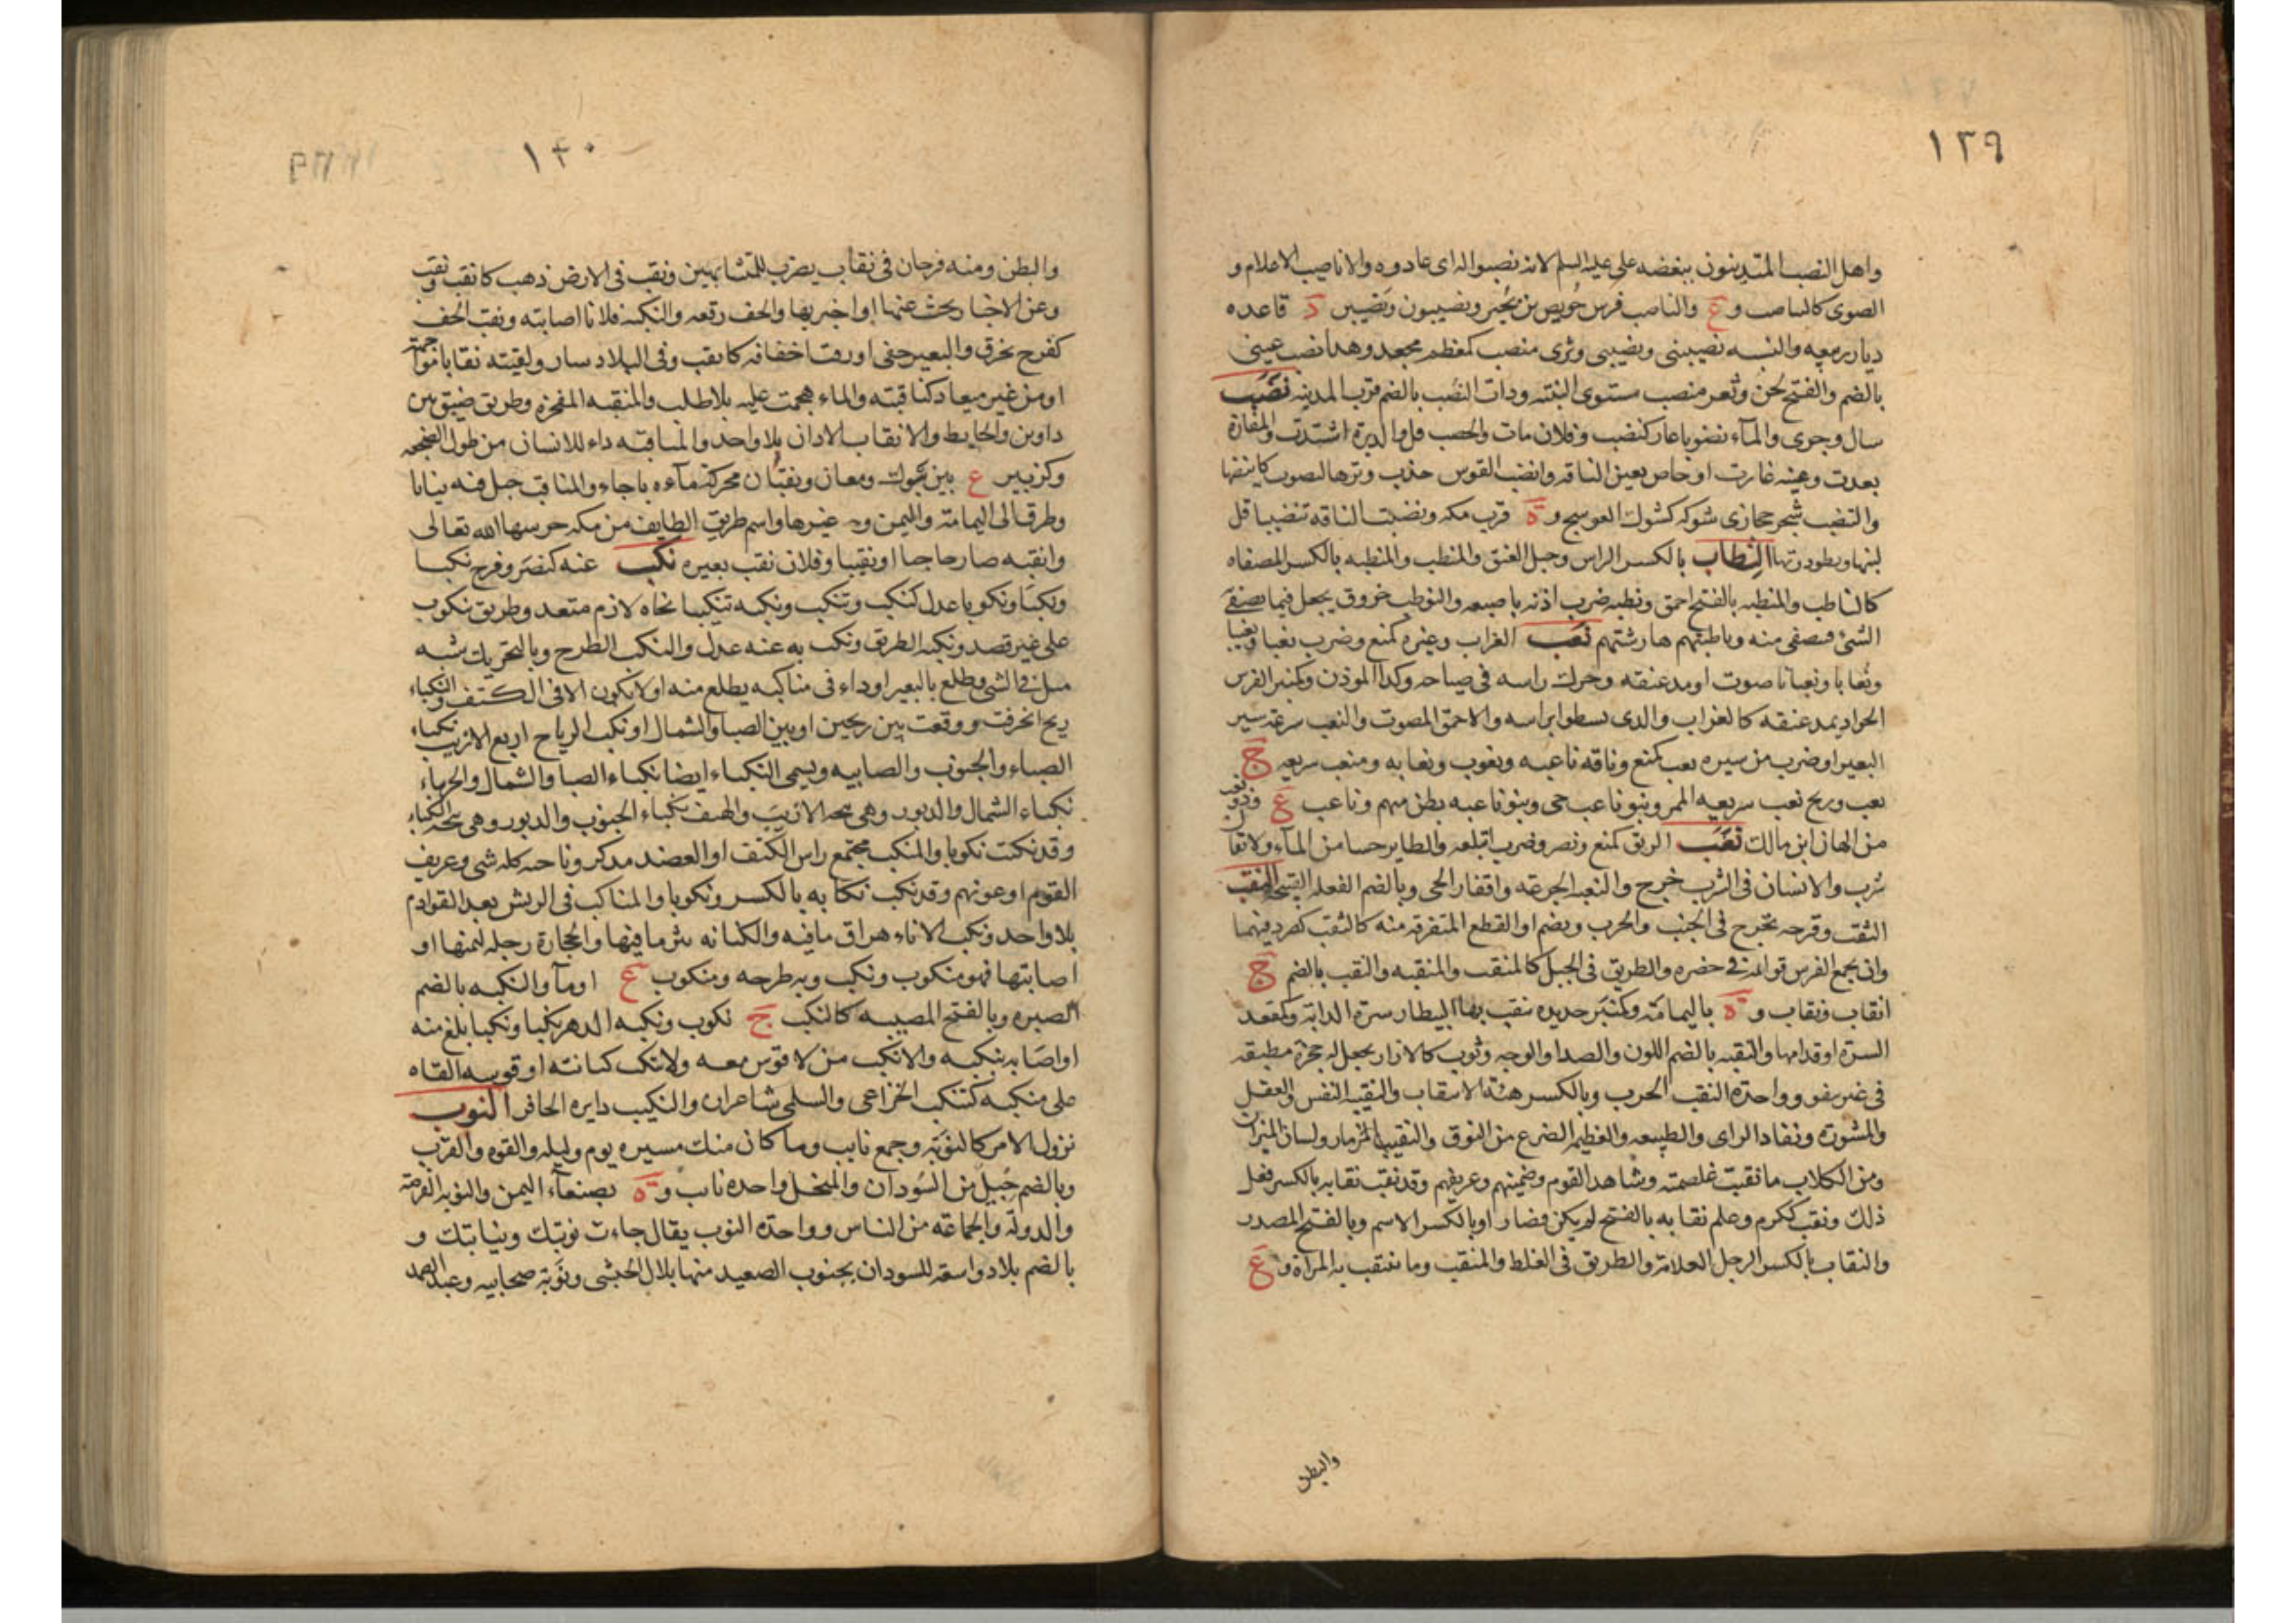 ١٣٩
واهل النصب المتدينون ببغضه على عليه السلم لانه نصبوا له اى عادوه والاناصيب الاعلام و
الصوى كالتناصب و ع والناصب فرس حويص بن بجير ونصيبون ونصيبين د قاعده
ديار ربيعه والنسبه نصيبنى ونصيبى وثرى منصب كمعظم مجعد وهذا نصب عينى
بالضم والفتح لحن وثغر منصب مستوى النبته وذات النصب بالضم قرب المدينه نضب
سال وجرى والمآء نضوبا غار كنضب وفلان مات والخصب قل والدبرة اشتدت والمفازة
بعدت وعينه غارت او خاص بعين الناقه وانضب القوس جذب وترها لتصوت كانبضها
والتنضب شجر حجازى شوكه كشوك العوسج و ة قرب مكه ونضبت الناقه تنضيبا قل
لبنها وبطؤ درتها النطاب بالكسر الراس وحبل العنق والمنطب والمنطبه بالكسر المصفاه
كالناطب والمنطبه بالفتح احمق ونطبه ضرب اذنه باصبعه والنوطب خروق يجعل فيما يصفى
الشئ فيصفى منه وناطبهم هارشتهم نعب الغراب وغيره كمنع وضرب نعبا ونعيبا
ونعابا ونعبانا صوت او مد عنقه وحرك راسه فى صياحه وكذا الموذن وكمنبر الفرس
الجواد يمد عنقه كالغراب والذى يسطو براسه والاحمق المصوت والنعب سرعة سير
البعير او ضرب من سيره نعب كمنع وناقه ناعبه ونعوب ونعابه ومنعب سريعه ج
نعب وريح نعب سريعه الممر وبنو ناعب حى وبنو ناعبه بطن منهم وناعب ع وذو نعب
من الهان ابن مالك نغب الريق كمنع ونصر وضرب ابتلعه والطاير حسا من المآء ولا تقل
شرب والانسان فى الشرب جرع والنغبه الجرعه واقفار الحى وبالضم الفعله القبيحه النقب
الثقب وقرحه تخرج فى الجنب والجرب ويضم او القطع المتفرقه منه كالنقب كصرد فيهما
وان يجمع الفرس قوايمه فى حضره والطريق فى الجبل كالمنقب والمنقبه والنقب بالضم ج
انقاب ونقاب و ة باليمامة وكمنبر حديده ينقب بها البيطار سرة الدابة وكمقعد
السرة او قدامها والنقبه بالضم اللون والصدا والوجه وثوب كالازار يجعل له حجزة مطبقه
فى غير نيفق وواحدة النقب الجرب وبالكسر هيئة الانتقاب والنقيبه النفس والعقل
والمشورة ونفاذ الراى والطبيعه والعظيمه الضرع من النوق والنقيب المزمار ولسان الميزان
ومن الكلاب ما نقبت غلصمته وشاهد القوم وضمينهم وعريفهم وقد نقب نقابه بالكسر فعل
ذلك ونقب ككرم وعلم نقابه بالفتح لم يكن فصار او بالكسر الاسم وبالفتح المصدر
والنقاب بالكسر الرجل العلامة والطريق فى الغلظ والمنقب وما تنتقب به المراة و ع
والبطن
١٤٠
والبطن ومنه فرخان فى نقاب يضرب للمتشابهين ونقب فى الارض ذهب كانقب ونقب
وعن الاخبار بحث عنها او اخبر بها والخف رقعه والنكبه فلانا اصابته ونقب الخف
كفرح تخرق والبعير حفى او رقت اخفافه كانقب وفى البلاد سار ولقيته نقابا مواجهة
او من غير ميعاد كناقبته والماء هجمت عليه بلا طلب والمنقبه المفخرة وطريق ضيق بين
دارين والحايط والانقاب الاذان بلا واحد والمناقبه داء للانسان من طول الضجعه
وكزبير ع بين تبوك ومعان ونقبان محركة مآءه باجاء والمناقب جبل فيه ثنايا
وطرق الى اليمامة واليمن وغيرها واسم طريق الطايف من مكه حرسها الله تعالى
وانقبه صار حاجبا او نقيبا وفلان نقب بعيره نكب عنه كنصر وفرح نكبا
ونكبا ونكوبا عدل كنكب وتنكب ونكبه تنكيبا نحاه لازم متعد وطريق ينكوب
على غير قصد ونكبه الطريق ونكب به عنه عدل والنكب الطرح وبالتحريك شبه
ميل فى الشى وظلع بالبعير او داء فى مناكبه يظلع منه او لا يكون الا فى الكتف والنكباء
ريح انحرفت ووقعت بين ريحين او بين الصبا والشمال او نكب الرياح اربع الازيب نكباء
الصباء والجنوب والصابيه ويسمى النكيباء ايضا نكباء الصبا والشمال والجربياء
نكباء الشمال والدبور وهى نيحه الازيب والهيف نكباء الجنوب والدبور وهى نيحه النكيباء
وقد نكبت نكوبا والمنكب مجتمع راس الكتف او العضد مذكر وناحيه كل شى وعريف
القوم او عونهم وقد نكب نكابه بالكسر ونكوبا والمناكب فى الريش بعد القوادم
بلا واحد ونكب الاناء هراق ما فيه والكنانه نثر ما فيها والحجارة رجله لثمتها او
اصابتها فهو منكوب ونكب وبه طرحه ومنكوب ع او مآ والنكبه بالضم
الصبره وبالفتح المصيبه كالنكب ج نكوب ونكبه الدهر نكبا ونكبا بلغ منه
او اصابه بنكبه والانكب من لا قوس معه ولا تنكب كنانته او قوسه القاه
على منكبه كتنكب الخزاعى والسلمى شاعران والنكيب دايره الحافر النوب
نزول الامر كالنوبة وجمع نايب وما كان منك مسيره يوم وليله والقوه والقرب
وبالضم جيل من السودان والنحل واحده نايب و ة بصنعاء اليمن والنوبه الفرصة
والدولة والجماعه من الناس وواحدة النوب يقال جاءت نوبتك ونيابتك و
بالضم بلاد واسعة للسودان بجنوب الصعيد منها بلال الحبشى ونوبة صحابيه وعبد الصمد